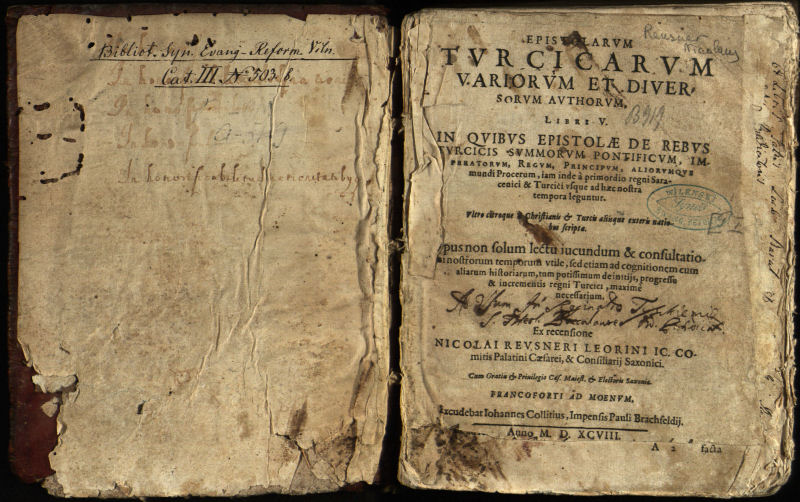 Bibliot. Syn. Evang-Reform. Viln.
Cat. III. No 303 b.
In honorificabilitudinitatibus
Reusner
Nicolaus
EPISTOLARVM
TVRCICARVM
VARIORVM ET DIVER-
SORVM AVTHORVM,
LIBRI V.
IN QVIBVS EPISTOLÆ DE REBVS
TVRCICIS SVMMORVM PONTIFICVM, IM-
PERATORVM, REGVM, PRINCIPVM, ALIORVMQVE
mundi Procerum, iam inde à primordio regni Sara-
cenici & Turcici vsque ad hæc nostra
tempora leguntur.
Vltro citroque à Christianis & Turcis aliisque exteris natio-
bus scriptæ.
pus non solum lectu iucundum & consultatio-
nostrorum temporum vtile, sed etiam ad cognitionem cum
aliarum historiarum, tum potissimum de initijs, progressu
& incrementis regni Turcici, maximè
necessarium.
Ad Vsum
S. Theol.
Ex recensione
NICOLAI REVSNERI LEORINI IC. CO-
mitis Palatini Cæsarei, & Consiliarij Saxonici.
Cum Gratia & Priuilegio Cæs. Maiest. & Electoris Saxonia.
FRANCOFORTI AD MOENVM,
Excudebat Iohannes Collitius, Impensis Pauli Brachfeldij.
Anno M. D. XCVIII.
A 2 facta